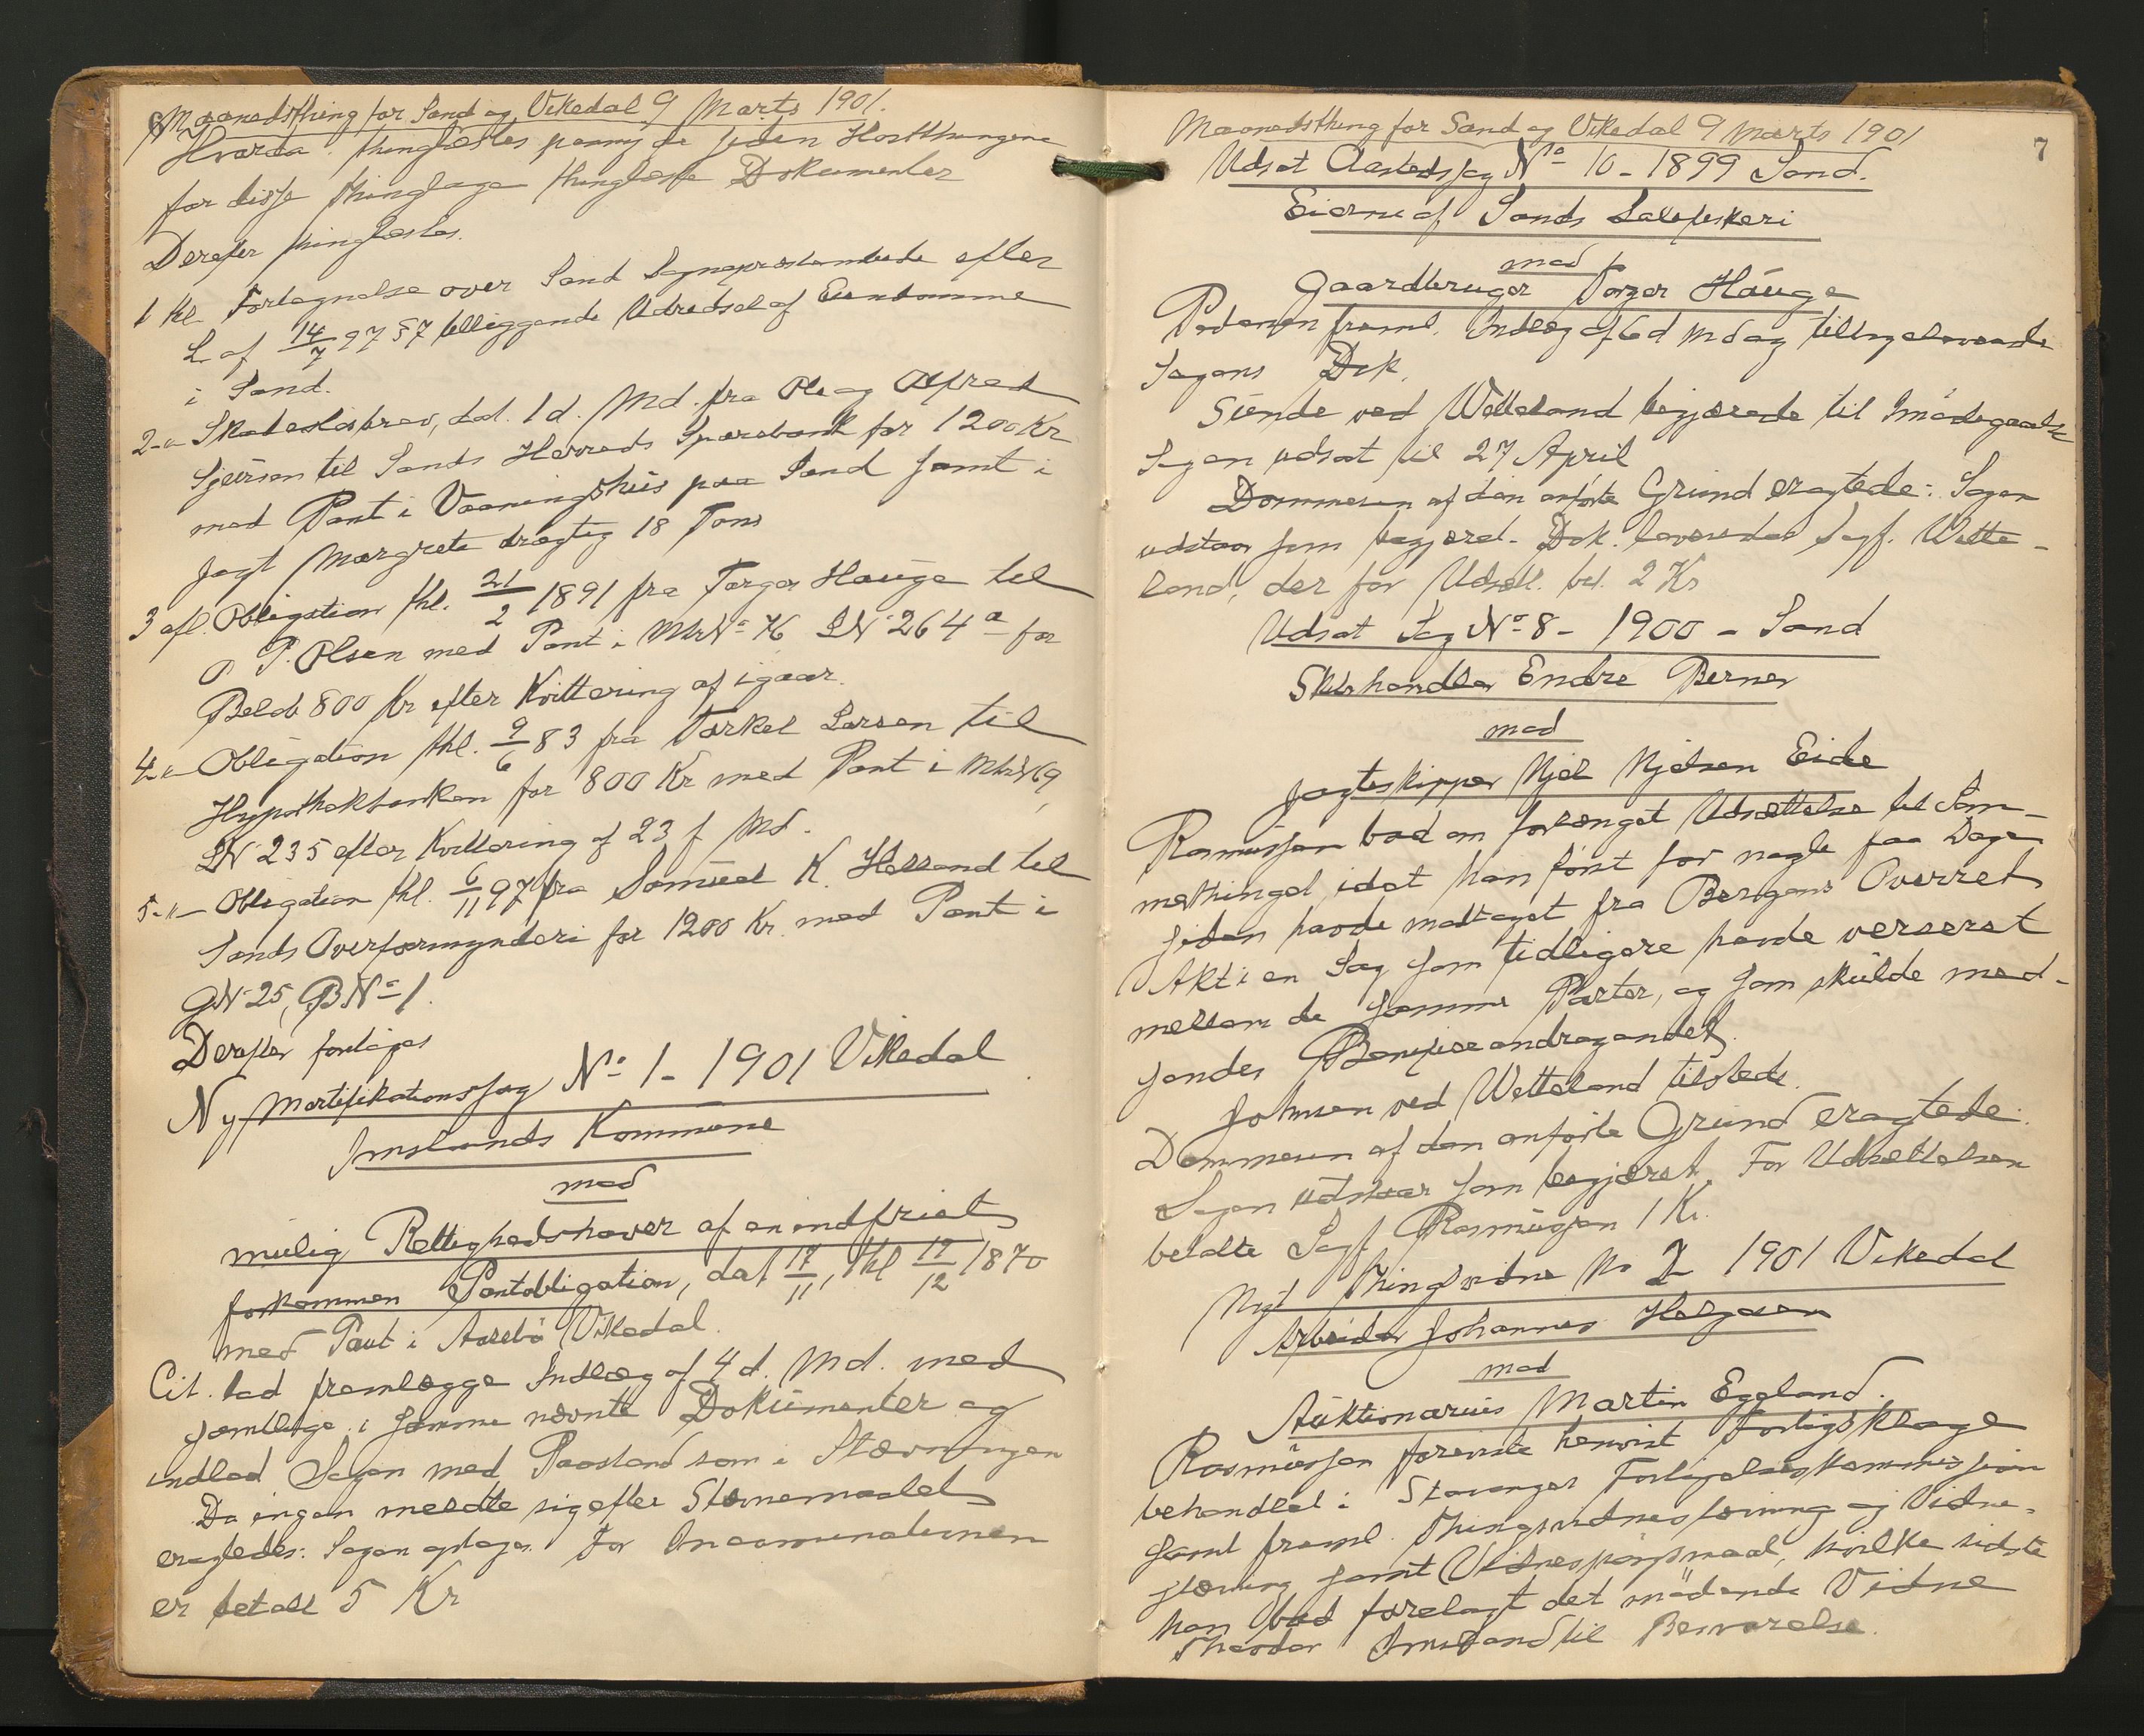 Maanedsthing for Sand og Vikedal 9 Marts 1901.
Hvorda thinglæstes paany de siden Hostthingene
for disse thinglage thinglæste Dokumenter
Derefter thinglæstes.
1 Kl Fortegnelse over Sand Sogneprestembede efter
L af 14/7 97 § 7 tilliggende Udredsel af Eiendomme
i Sand.
2-"- Skadesløsbrev, dat. 1 d. Md. fra Ole og Alfred
Sjursen til Sands Herreds Sparebank for 1200 Kr
med Pant i Vaaningshus paa Sand samt i
Jagt Margrete drægtig 18 Tons
3 afl. Obligation thl. 21/2 1891 fra Torger Hauge til
O P. Olsen med Pant i MtrNo 76 LN 264 a for
Beløb 800 Kr efter Kvittering af igaar.
4-"- Obligation thl. 9/6 83 fra Torkel Larsen til
Hypothekbanken for 800 Kr med Pant i MtrN 69,
LN 235 efter Kvittering af 23 f Md.
5-"- Obligation thl. 6/11 97 fra Samuel K. Helland til
Sands Overformynderi for 1200 Kr. med Pant i
GN 25, BNo 1.
Derefter foretages
Ny Mortifikationssag No 1 - 1901 Vikedal
Imslands Kommune
mod
mulig Rettighedshaver af en indfriet
forkommen Pantobligation, dat 17/11, thl 19/12 1870
med Pant i Vikedal.
Cit. lod fremlægge Indlæg af 4 d. Md. med
samtlige i samme nævnte Dokumenter og
indlod Sagen med Paastand som i Stævningen
Da ingen meldte sig efter Stævnemaalet
eragtedes: Sagen optages. For
er betalt 5 Kr
Maanedsthing for Sand og Vikedal 9 Marts 1901
7
Udsat Aastedssag No 10 - 1899 Sand.
Eierne af Sands Laxefiskeri
mod
Gaardbruger Torger Hauge
Pedersen freml. Indlæg af 6 d Md og tilbageleverede
Sagens Dok.
Sunde ved Wetteland begjærede til Imødegaaelse
Sagen udsat til 27 April
Dommeren af den anførte Grund eragtede: Sagen
udstaar som begjæret. Dok. leveredes Sagf. Wette-
land, der for Udsætt. bet. 2 Kr
Udsat Sag No 8 - 1900 - Sand
Endre Berner
mod
Jagteskipper Njel Njelsen Eide
Rasmussen bad om forlænget Udsættelse til Som-
merthinget, idet han først for nogle faa Dage
siden havde modtaget fra Bergens Overret
Akt i en Sag som tidligere havde verseret
mellem de samme Parter, og som skulde med-
sendes Bevæsandragendet.
Johnsen ved Wetteland tilstede.
Dommeren af den anførte Grund eragtede:
Sagen udstaar som begjæret. For Udsættelsen
betalte Sagf Rasmussen 1 Kr.
Nyt Thingsvidne No 2 1901 Vikedal
Arbeider Johannes Helgesen
mod
Auktionarius Martin Egeland.
Rasmussen foreviste henvist Forligsklage
behandlet i Stavanger Forligelseskommission
samt freml. Thingsvidnestævning og Vidne-
stævning samt Vidnespørgsmaal, hvilke sidste
han bad forelagt det mødende Vidne
Theodor Imsland til Besvarelse.